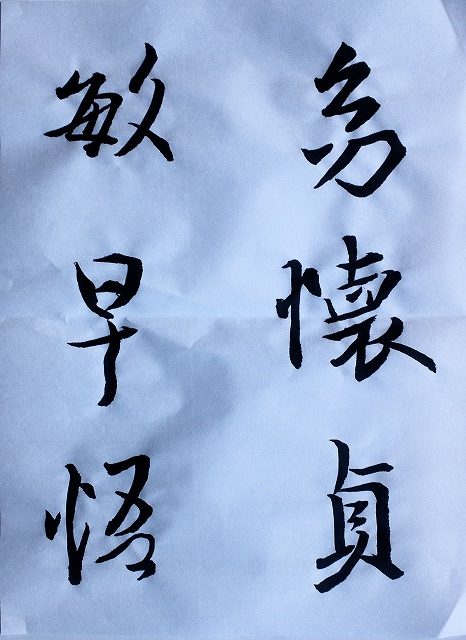 幼懐貞
敏早悟